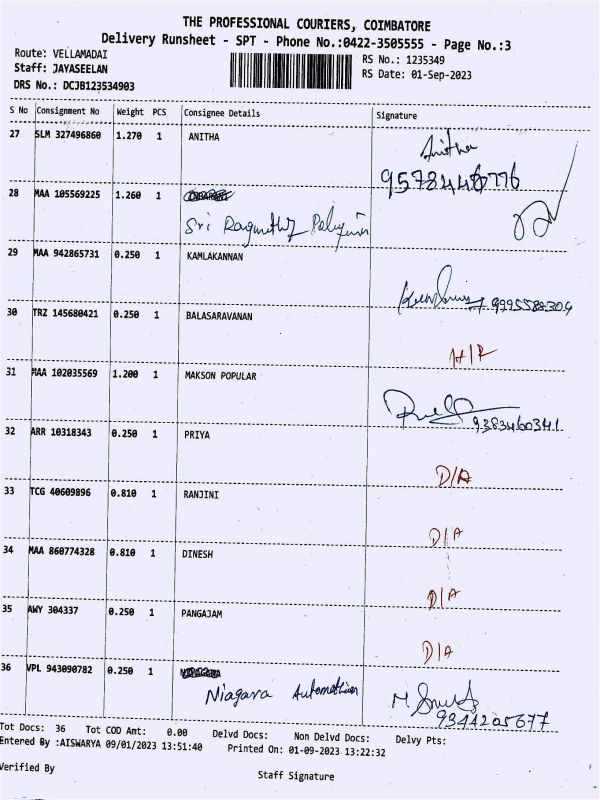 THE PROFESSIONAL COURIERS, COIMBATORE
Delivery Runsheet - SPT - Phone No.:0422-3505555 - Page No.:3
Route: VELLAMADAI
RS No.: 1235349
Staff: JAYASEELAN
RS Date: 01-Sep-2023
DRS No.: DCJB123534903
S No Consignment No Weight PCS Consignee Details Signature
27 SLM 327496860 1.270 1 ANITHA Anitha
28 MAA 105569225 1.260 1
Sri
29 MAA 942865731 0.250 1 KAMLAKANNAN
30 TRZ 145680421 0.250 1 BALASARAVANAN
31 MAA 102035569 1.200 1 MAKSON POPULAR
9383460341
32 ARR 10318343 0.250 1 PRIYA
D/A
33 TCG 40609896 0.810 1 RANJINI
D/A
34 MAA 860774328 0.810 1 DINESH
D/A
35 AWY 304337 0.250 1 PANGAJAM
D/A
36 VPL 943090782 0.250 1
Niagara Automation
9344205677
Tot Docs: 36 Tot COD Amt: 0.00 Delvd Docs: Non Delvd Docs: Delvy Pts:
Entered By :AISWARYA 09/01/2023 13:51:40 Printed On: 01-09-2023 13:22:32
Verified By
Staff Signature